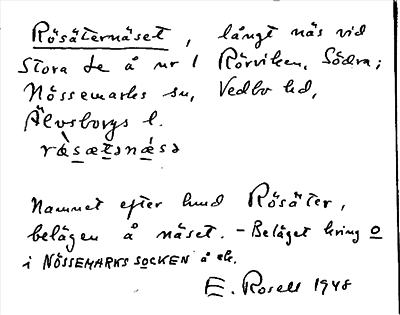 Rösäternäset, långt näs vid
Stora Le å nr 1 Rörviken, Södra;
Nössemarks sn, Vedbo hd,
Älvsborgs l.
rø̀sætənǽsə
Namnet efter hmd Rösäter,
belägen å näset. - Beläget kring o
i NÖSSEMARKS SOCKEN å ek.
E. Rosell 1948